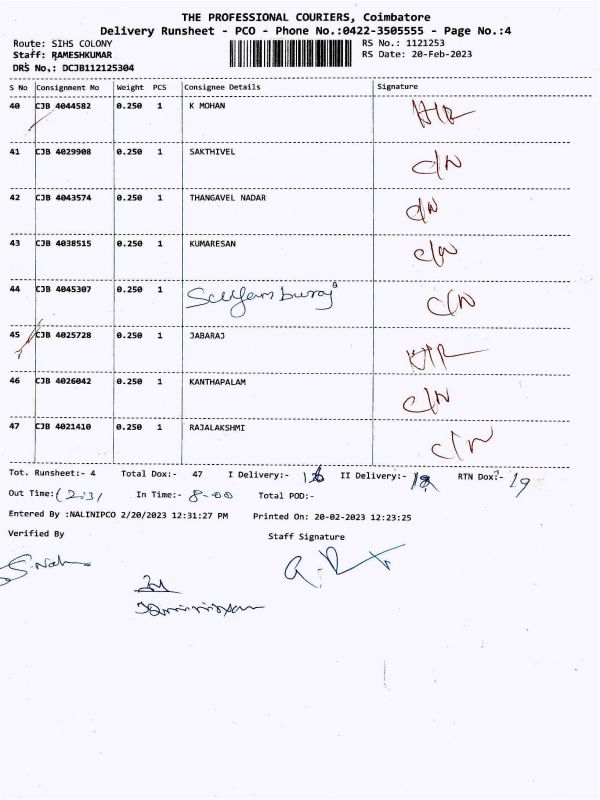 THE PROFESSIONAL COURIERS, Coimbatore
Delivery Runsheet - PCO - Phone No.:0422-3505555 - Page No.:4
Route: SIHS COLONY RS No.: 1121253
Staff: RAMESHKUMAR RS Date: 20-Feb-2023
DRS No.: DCJB112125304
S No Consignment No Weight PCS Consignee Details Signature
40 CJB 4044582 0.250 1 K MOHAN
41 CJB 4029908 0.250 1 SAKTHIVEL C/N
42 CJB 4043574 0.250 1 THANGAVEL NADAR C/N
43 CJB 4038515 0.250 1 KUMARESAN C/N
44 CJB 4045307 0.250 1 C/N
45 CJB 4025728 0.250 1 JABARAJ
46 CJB 4026042 0.250 1 KANTHAPALAM C/N
47 CJB 4021410 0.250 1 RAJALAKSHMI C/N
Tot. Runsheet:- 4 Total Dox:- 47 I Delivery:- II Delivery:- RTN Dox:- 19
Out Time: In Time:- 8-00 Total POD:-
Entered By :NALINIPCO 2/20/2023 12:31:27 PM Printed On: 20-02-2023 12:23:25
Verified By Staff Signature